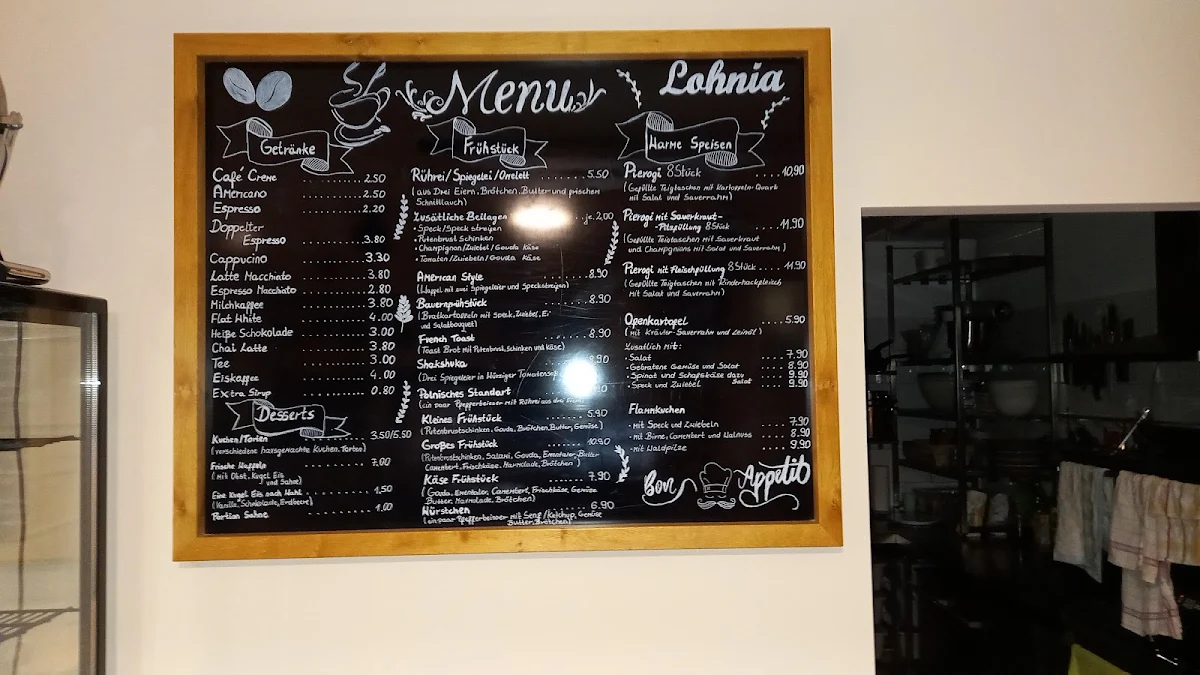 Menu
Lohnia
Getränke
Café Creme ........ 2.50
Americano ........ 2.50
Espresso ........ 2.20
Doppelter
Espresso ........ 3.80
Cappucino ........ 3.30
Latte Macchiato ........ 3.80
Espresso Macchiato ........ 2.80
Milchkaffee ........ 3.80
Flat White ........ 4.00
Heiße Schokolade ........ 3.00
Chai Latte ........ 3.80
Tee ........ 3.00
Eiskaffee ........ 4.00
Extra Sirup ........ 0.80
Desserts
Kuchen/Torten ........ 3.50/5.50
(verschiedene hausgemachte Kuchen, Torten)
Frische Waffeln ........ 7.00
(mit Obst, Kugel Eis
und Sahne)
Eine Kugel Eis nach Wahl ........ 1,50
(Vanille, Schokolade, Erdbeere)
Portion Sahne ........ 1.00
Frühstück
Rührei/Spiegelei/Omelett ........ 5.50
(aus Drei Eiern, Brötchen, Butter und frischem
Schnittlauch)
Zusätliche Beilagen je 2,00
• Speck/Speck streifen
• Putenbrust Schinken
• Champignon/Zwiebel/Gouda Käse
• Tomaten/Zwiebeln/Gouda Käse
American Style ........ 8.90
(Waffel mit zwei Spiegeleier und Speckstreifen)
Bauernfrühstück ........ 8.90
(Bratkartoffeln mit Speck, Zwiebel, Ei
und Salatbouquet)
French Toast ........ 8.90
(Toast Brot mit Putenbrust, Schinken und Käse)
Shakshuka ........ 8.90
(Drei Spiegeleier in Würziger
Polnisches Standart
(ein paar Pfefferbeisser mit Rührei aus drei
Kleines Frühstück ........ 5.90
(Putenbrustschinken, Gouda, Brötchen, Butter, Gemüse)
Großes Frühstück ........ 10.90
(Putenbrustschinken, Salami, Gouda, Ementaler, Butter
Camembert, Frischkäse, Marmelade, Brötchen)
Käse Frühstück ........ 7.90
(Gouda, Ementaler, Camembert, Frischkäse, Gemüse
Butter, Marmelade, Brötchen)
Würstchen ........ 6.90
(ein paar Pfefferbeisser mit Senf/Ketchup, Gemüse
Butter, Brötchen)
Warme Speisen
Pierogi 8 Stück ........ 10,90
(Gefüllte Teigtaschen mit Kartoffeln-Quark
mit Salat und Sauerrahm)
Pierogi mit Sauerkraut-
-Pilzfüllung 8 Stück ........ 11.90
(Gefüllte Teigtaschen mit Sauerkraut
und Champignons mit Salat und Sauerrahm)
Pierogi mit Fleischfüllung 8 Stück ........ 11.90
(Gefüllte Teigtaschen mit Rinderhackfleisch
mit Salat und Sauerrahm)
Ofenkartofel ........ 5.90
(mit Kräuter-Sauerrahm und Leinöl)
Zusätlich mit:
• Salat ........ 7.90
• Gebratene Gemüse und Salat ........ 8.90
• Spinat und Schafskäse dazu Salat ........ 9.90
• Speck und Zwiebel ........ 9.90
Flammkuchen
• mit Speck und Zwiebeln ........ 7.90
• mit Birne, Camembert und Walnuss ........ 8.90
• mit Waldpilze ........ 9.90
Bon Appetit